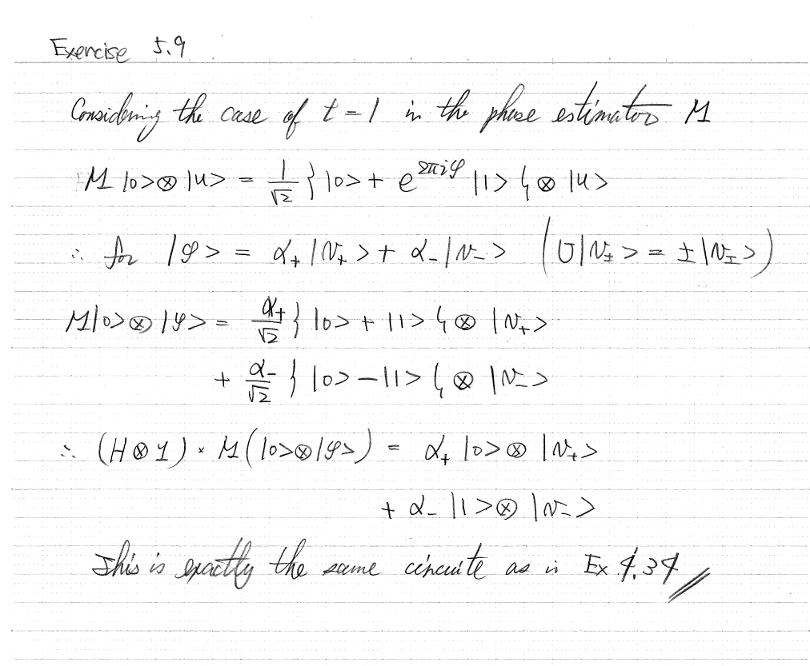 Exercise 5.9
Considering the case of t=1 in the phase estimator M
M |0>⊗|u> = 1/√2 { |0> + e^{2πiφ} |1> } ⊗ |u>
∴ for |φ> = α₊|v₊> + α₋|v₋> (U|v±> = ±|v±>)
M|0>⊗|φ> = α₊/√2 { |0> + |1> } ⊗ |v₊>
+ α₋/√2 { |0> - |1> } ⊗ |v₋>
∴ (H⊗1)・M(|0>⊗|φ>) = α₊ |0> ⊗ |v₊>
+ α₋ |1> ⊗ |v₋>
This is exactly the same circuite as in Ex 4.34